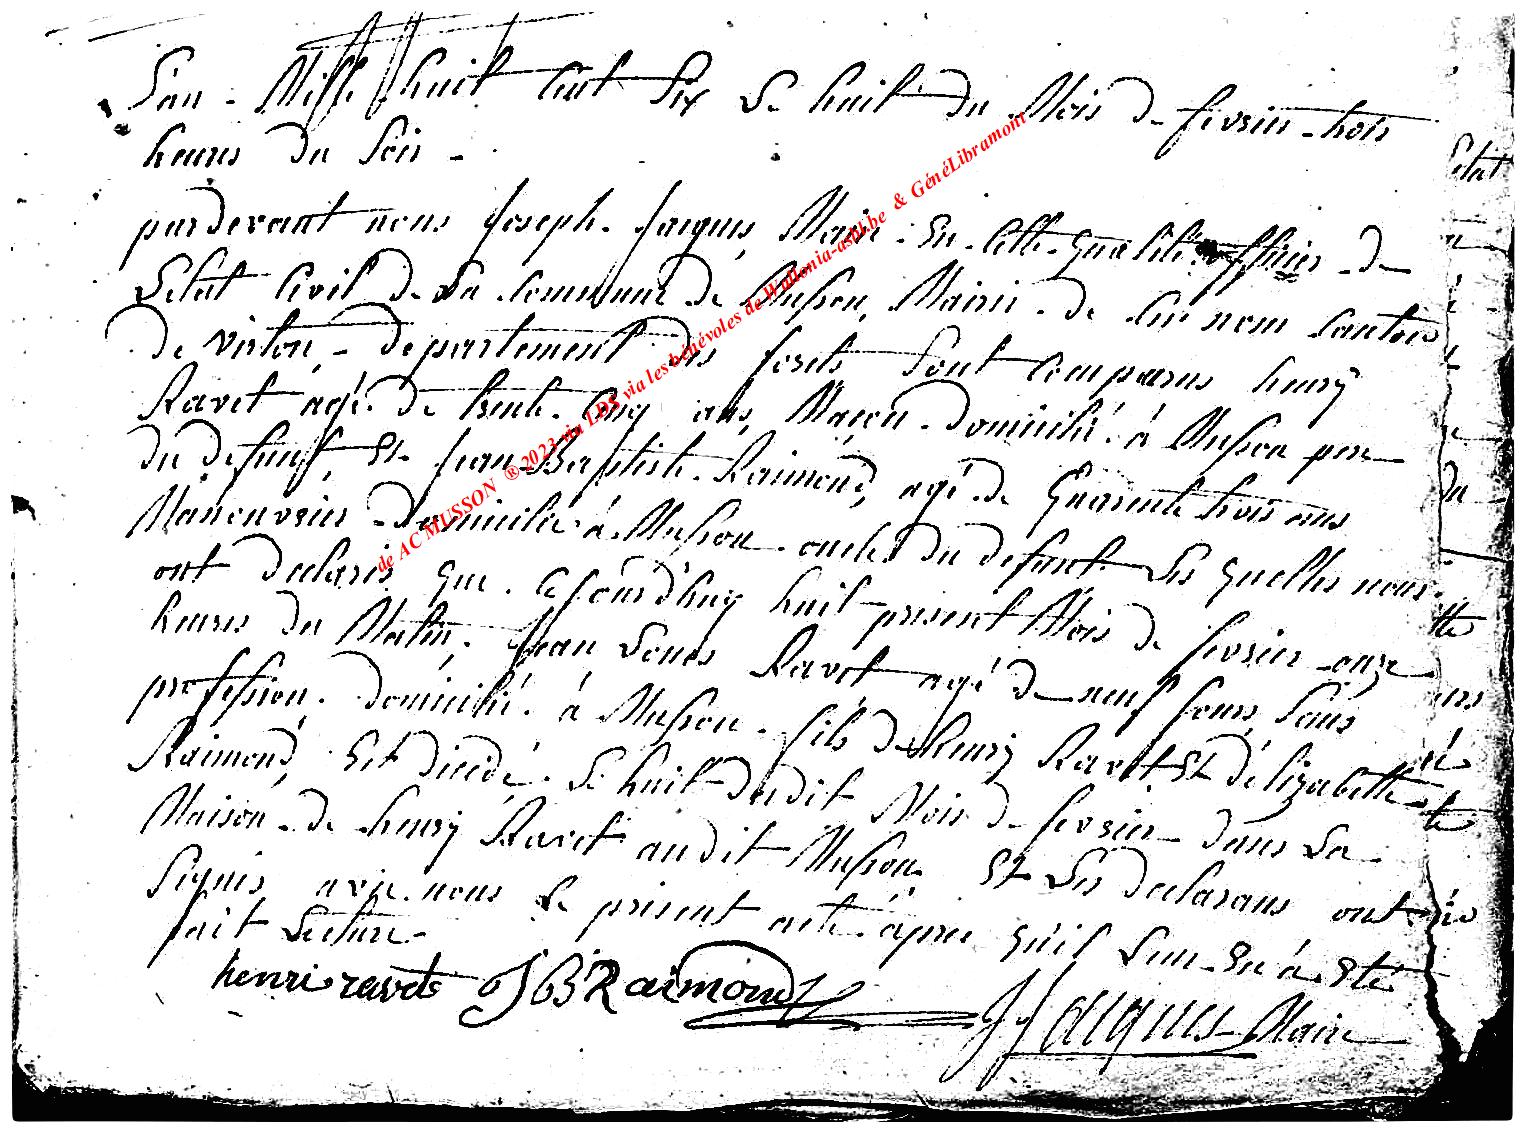 L'an Mille huit Cent Six Le huit du Mois de fevrier trois
heures du Soir
pardevant nous joseph jacques Maire En Cette qualité officier de
Letat Civil de La Commune de Musson, Mairie de Ce nom Canton
de virton, departement des forets Sont Comparus henry
Ravet agé de trente Cinq ans, Maçon domicilié à Musson pere
du defunt, Et jean Baptiste Raimond, agé de Quarente trois ans
Maneuvrier domicilié à Musson oncle du defunt Les quelles nous
ont declarés que Cejourd'huy huit present Mois de fevrier onze
heures du Matin, jean Louis Ravet agé de neuf jours, Sans
profession domicilié à Musson fils de henry Ravet Et d'élizabette
Raimond, Est décédé Le huit du dit Mois de fevrier dans La
Maison de henry Ravet audit Musson Et Les declarans ont
Signés avec nous Le present acte aprés qu'il Leur En à Eté
fait Lecture
henri ravet JB Raimond
JJacques Maire
de AC MUSSON ® 2023 via LDS via les bénévoles de Wallonia-asbl.be & GénéLibramont